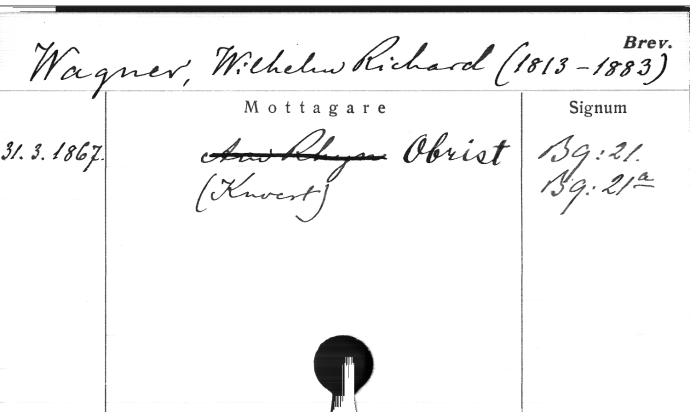 Brev.
Wagner, Wilhelm Richard (1813-1883)
Mottagare Signum
31.3.1867. Obrist Bg:21.
(Kuvert) Bg:21a